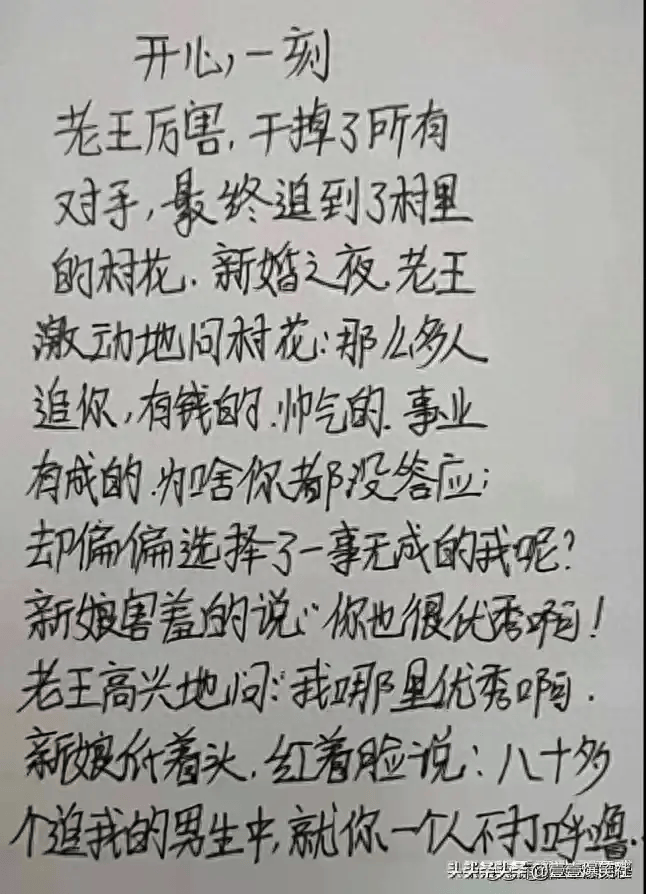 开心,一刻
老王厉害,干掉了所有
对手,最终追到了村里
的村花.新婚之夜.老王
激动地问村花:那么多人
追你,有钱的.帅气的.事业
有成的.为啥你都没答应;
却偏偏选择了一事无成的我呢?
新娘害羞的说:“你也很优秀啊!
老王高兴地问:“我哪里优秀啊.
新娘低着头.红着脸说:八十多
个追我的男生中,就你一个人不打呼噜..
头条 @壹壹爆笑社